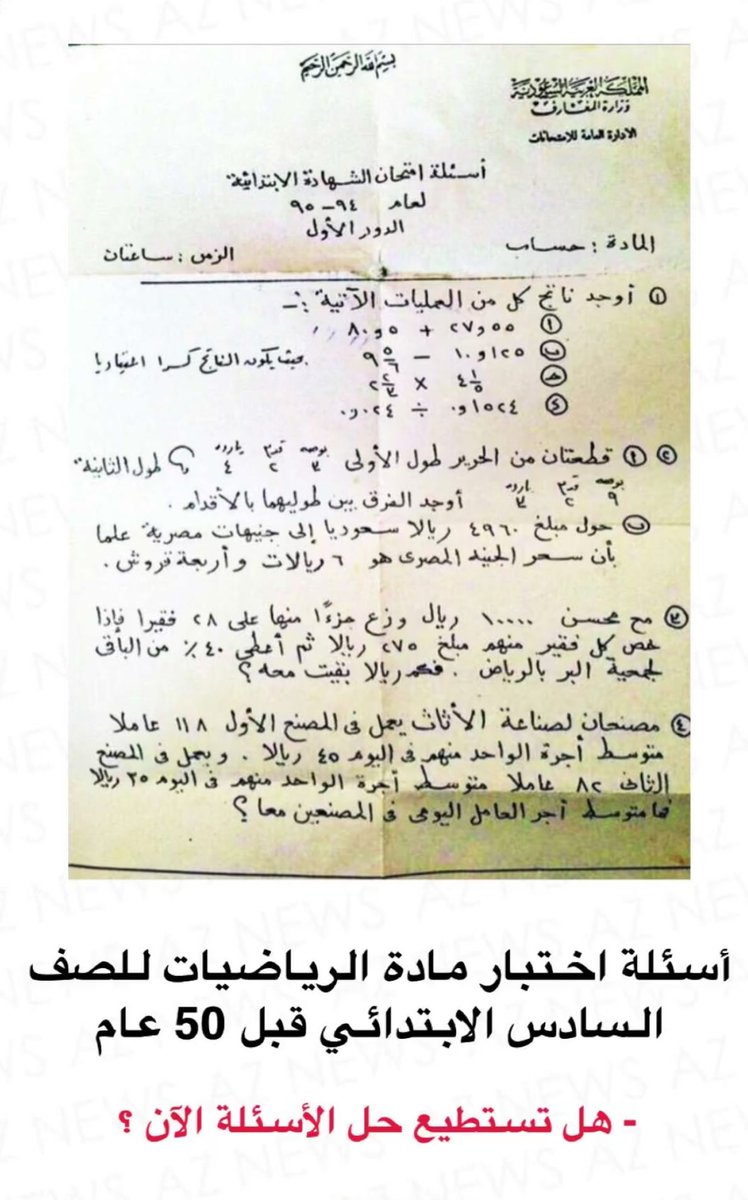 بسم الله الرحمن الرحيم
المملكة العربية السعودية
وزارة المعارف
الادارة العامة للامتحانات
أسئلة امتحان الشهادة الابتدائية
لعام ٩٤ – ٩٥
الدور الأول
المادة : حساب
الزمن : ساعتان
١ أوجد ناتج كل من العمليات الآتية :-
أ ٥٥و٢٧ + ٥و٨٠
ب ١٢٥و١٠ − ٩ ٥/٦ بحيث يكون الناتج كسرا اعتياديا
ج ٤ ١/٥ × ٢ ٢/٣
د ١٥٢٤و٠ ÷ ٠٢٤و٠
٢ أ قطعتان من الحرير طول الأولى ٣ بوصه ٢ قدم ٤ يارده وطول الثانية
٩ بوصه ٢ قدم ٣ يارده أوجد الفرق بين طوليهما بالأقدام .
ب حول مبلغ ٤٩٦٠ ريالا سعوديا إلى جنيهات مصرية علما
بأن سعر الجنيه المصرى هو ٦ ريالات وأربعة قروش .
٣ مع محسن ١٠٠٠٠ ريال وزع جزءًا منها على ٢٨ فقيرا فإذا
خص كل فقير منهم مبلغ ٢٧٥ ريالا ثم أعطى ٤٠ ٪ من الباقى
لجمعية البر بالرياض . فكم ريالا بقيت معه ؟
٤ مصنعان لصناعة الأثاث يعمل فى المصنع الأول ١١٨ عاملا
متوسط أجرة الواحد منهم فى اليوم ٤٥ ريالا . ويعمل فى المصنع
الثانى ٨٢ عاملا متوسط أجرة الواحد منهم فى اليوم ٣٥ ريالا
فما متوسط أجر العامل اليومى فى المصنعين معا ؟
أسئلة اختبار مادة الرياضيات للصف
السادس الابتدائي قبل 50 عام
- هل تستطيع حل الأسئلة الآن ؟
AZ NEWS